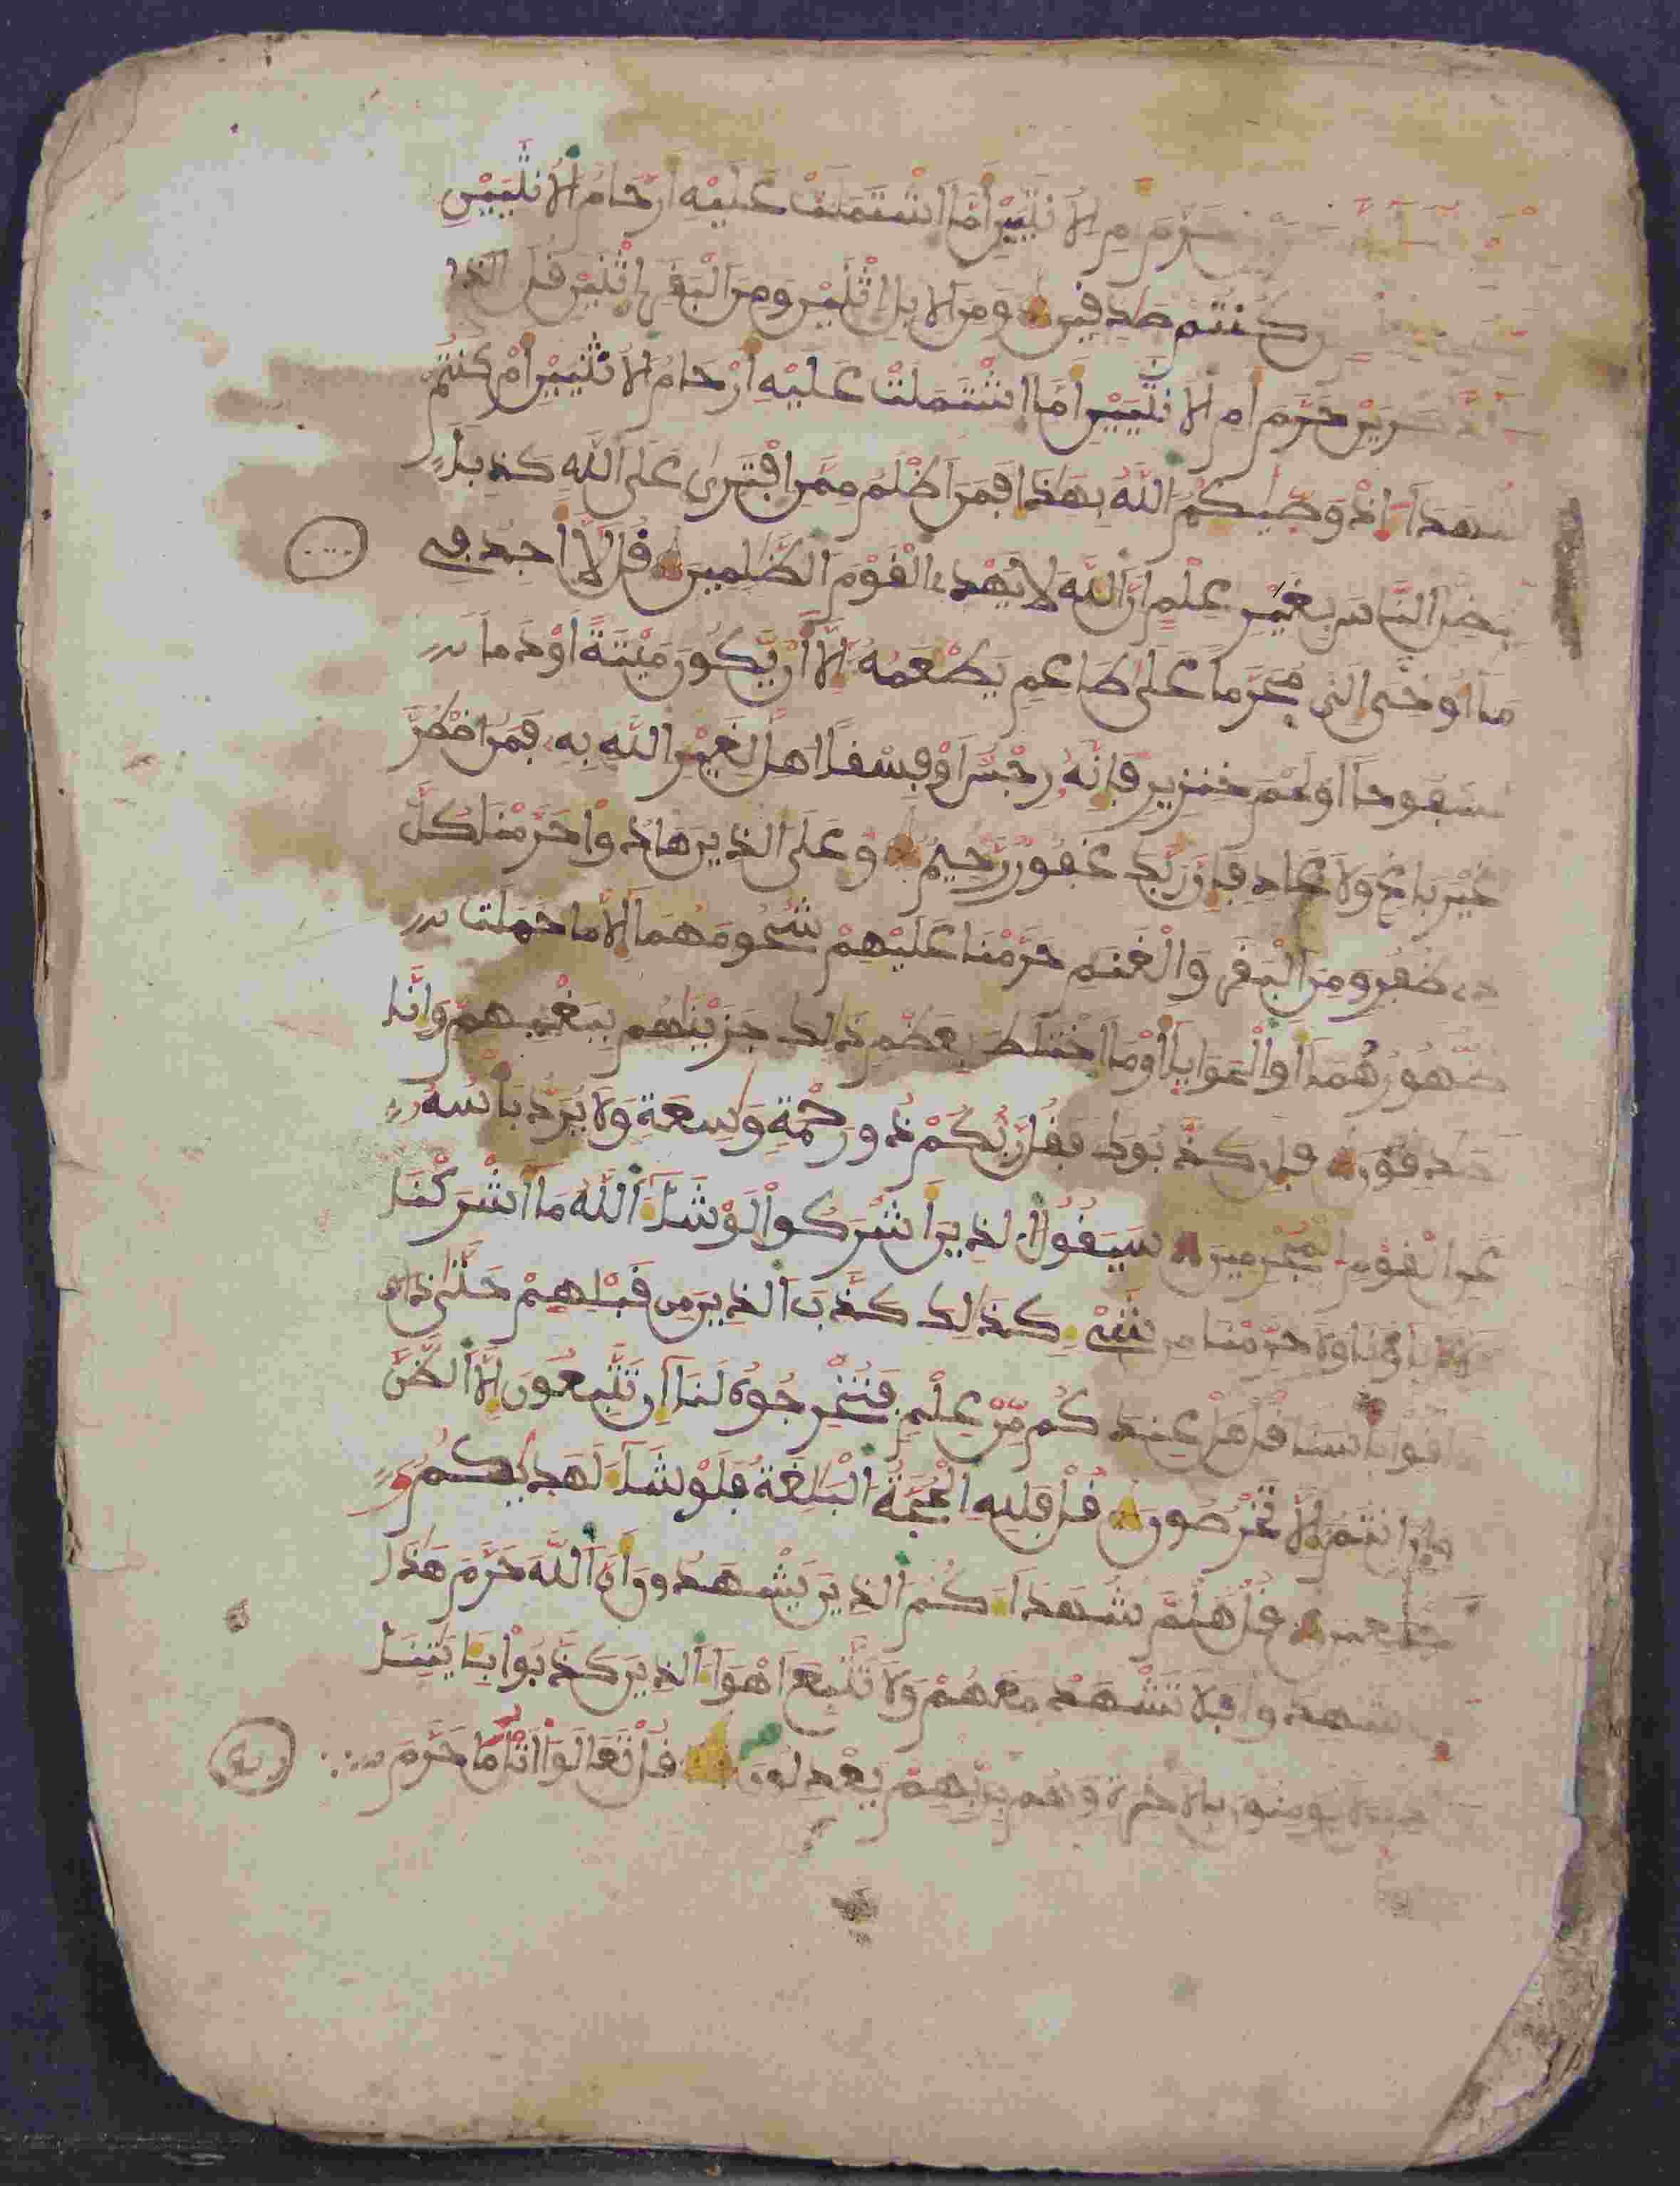 حرم ام الانثيين اما اشتملت عليه ارحام الانثيين
كنتم صدفين ومن الابل اثنين ومن البفر اثنين فل الذ
كرين حرم ام الانثيين اما اشتملت عليه ارحام الانثيين ام كنتم
شهدا اذ وصيكم الله بهذا فمن اظلم ممن افترى على الله كذبا ل
يضل الناس بغير علم ان الله لا يهدى الفوم الظلمين فل لا اجد في
ما اوحى الى محرما على طاعم يطعمه الا ان يكون ميتة او دما
مسفوحا او لحم خنزير فانه رجس او فسفا اهل لغير الله به فمن اضطر
غير باغ ولا عاد فان ربك غفور رحيم وعلى الذين هادوا حرمنا كل
ذى ظفر ومن البفر والغنم حرمنا عليهم شحومهما الا ما حملت
ظهورهما او الحوايا او ما اختلط بعظم ذلك جزينهم ببغيهم وانا
لصدفون فان كذبوك ففل ربكم ذو رحمة وسعة ولا يرد باسه
عن الفوم المجرمين سيفول الذين اشركوا لو شا الله ما اشركنا
ولا اباونا ولا حرمنا من شي كذلك كذب الذين من فبلهم حتى ذا
فوا باسنا فل هل عندكم من علم فتخرجوه لنا ان تتبعون الا الظن
وان انتم الا تخرصون فل فلله الحجة البلغة فلو شا لهديكم
اجمعين فل هلم شهداكم الذين يشهدون ان الله حرم هذا
فان شهدوا فلا تشهد معهم ولا تتبع اهوا الذين كذبوا بايتنا
والذين لا يومنون بالاخرة وهم بربهم يعدلون فل تعالوا اتل ما حرم
ربه